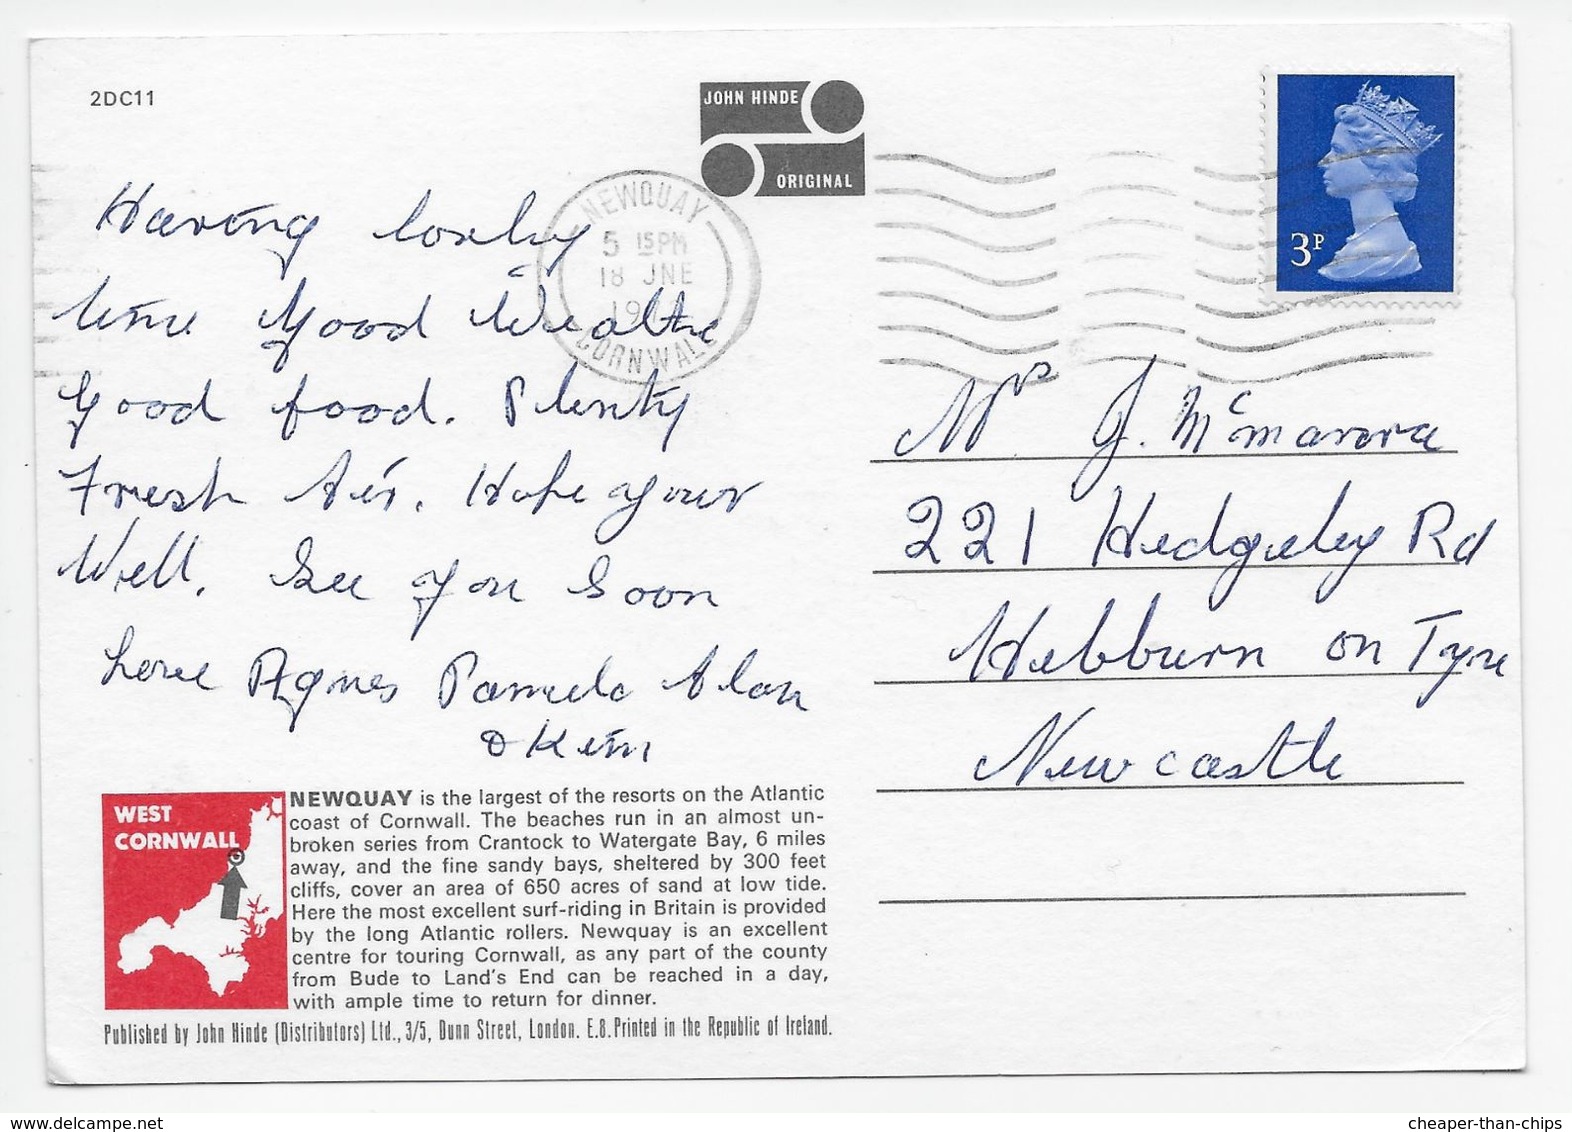 2DC11
JOHN HINDE
ORIGINAL
NEWQUAY
5 15PM
18 JNE
19
CORNWALL
3P
Having lovely
time good Weather
good food. Plenty
Fresh Air. Hope your
Well. See you Soon
Love Agnes Pamela Alan
& Kim
Mrs J.
221 Hedgeley Rd
Hebburn on Tyne
Newcastle
WEST
CORNWALL
NEWQUAY is the largest of the resorts on the Atlantic
coast of Cornwall. The beaches run in an almost un-
broken series from Crantock to Watergate Bay, 6 miles
away, and the fine sandy bays, sheltered by 300 feet
cliffs, cover an area of 650 acres of sand at low tide.
Here the most excellent surf-riding in Britain is provided
by the long Atlantic rollers. Newquay is an excellent
centre for touring Cornwall, as any part of the county
from Bude to Land's End can be reached in a day,
with ample time to return for dinner.
Published by John Hinde (Distributors) Ltd., 3/5, Dunn Street, London. E.8. Printed in the Republic of Ireland.
cheaper-than-chips